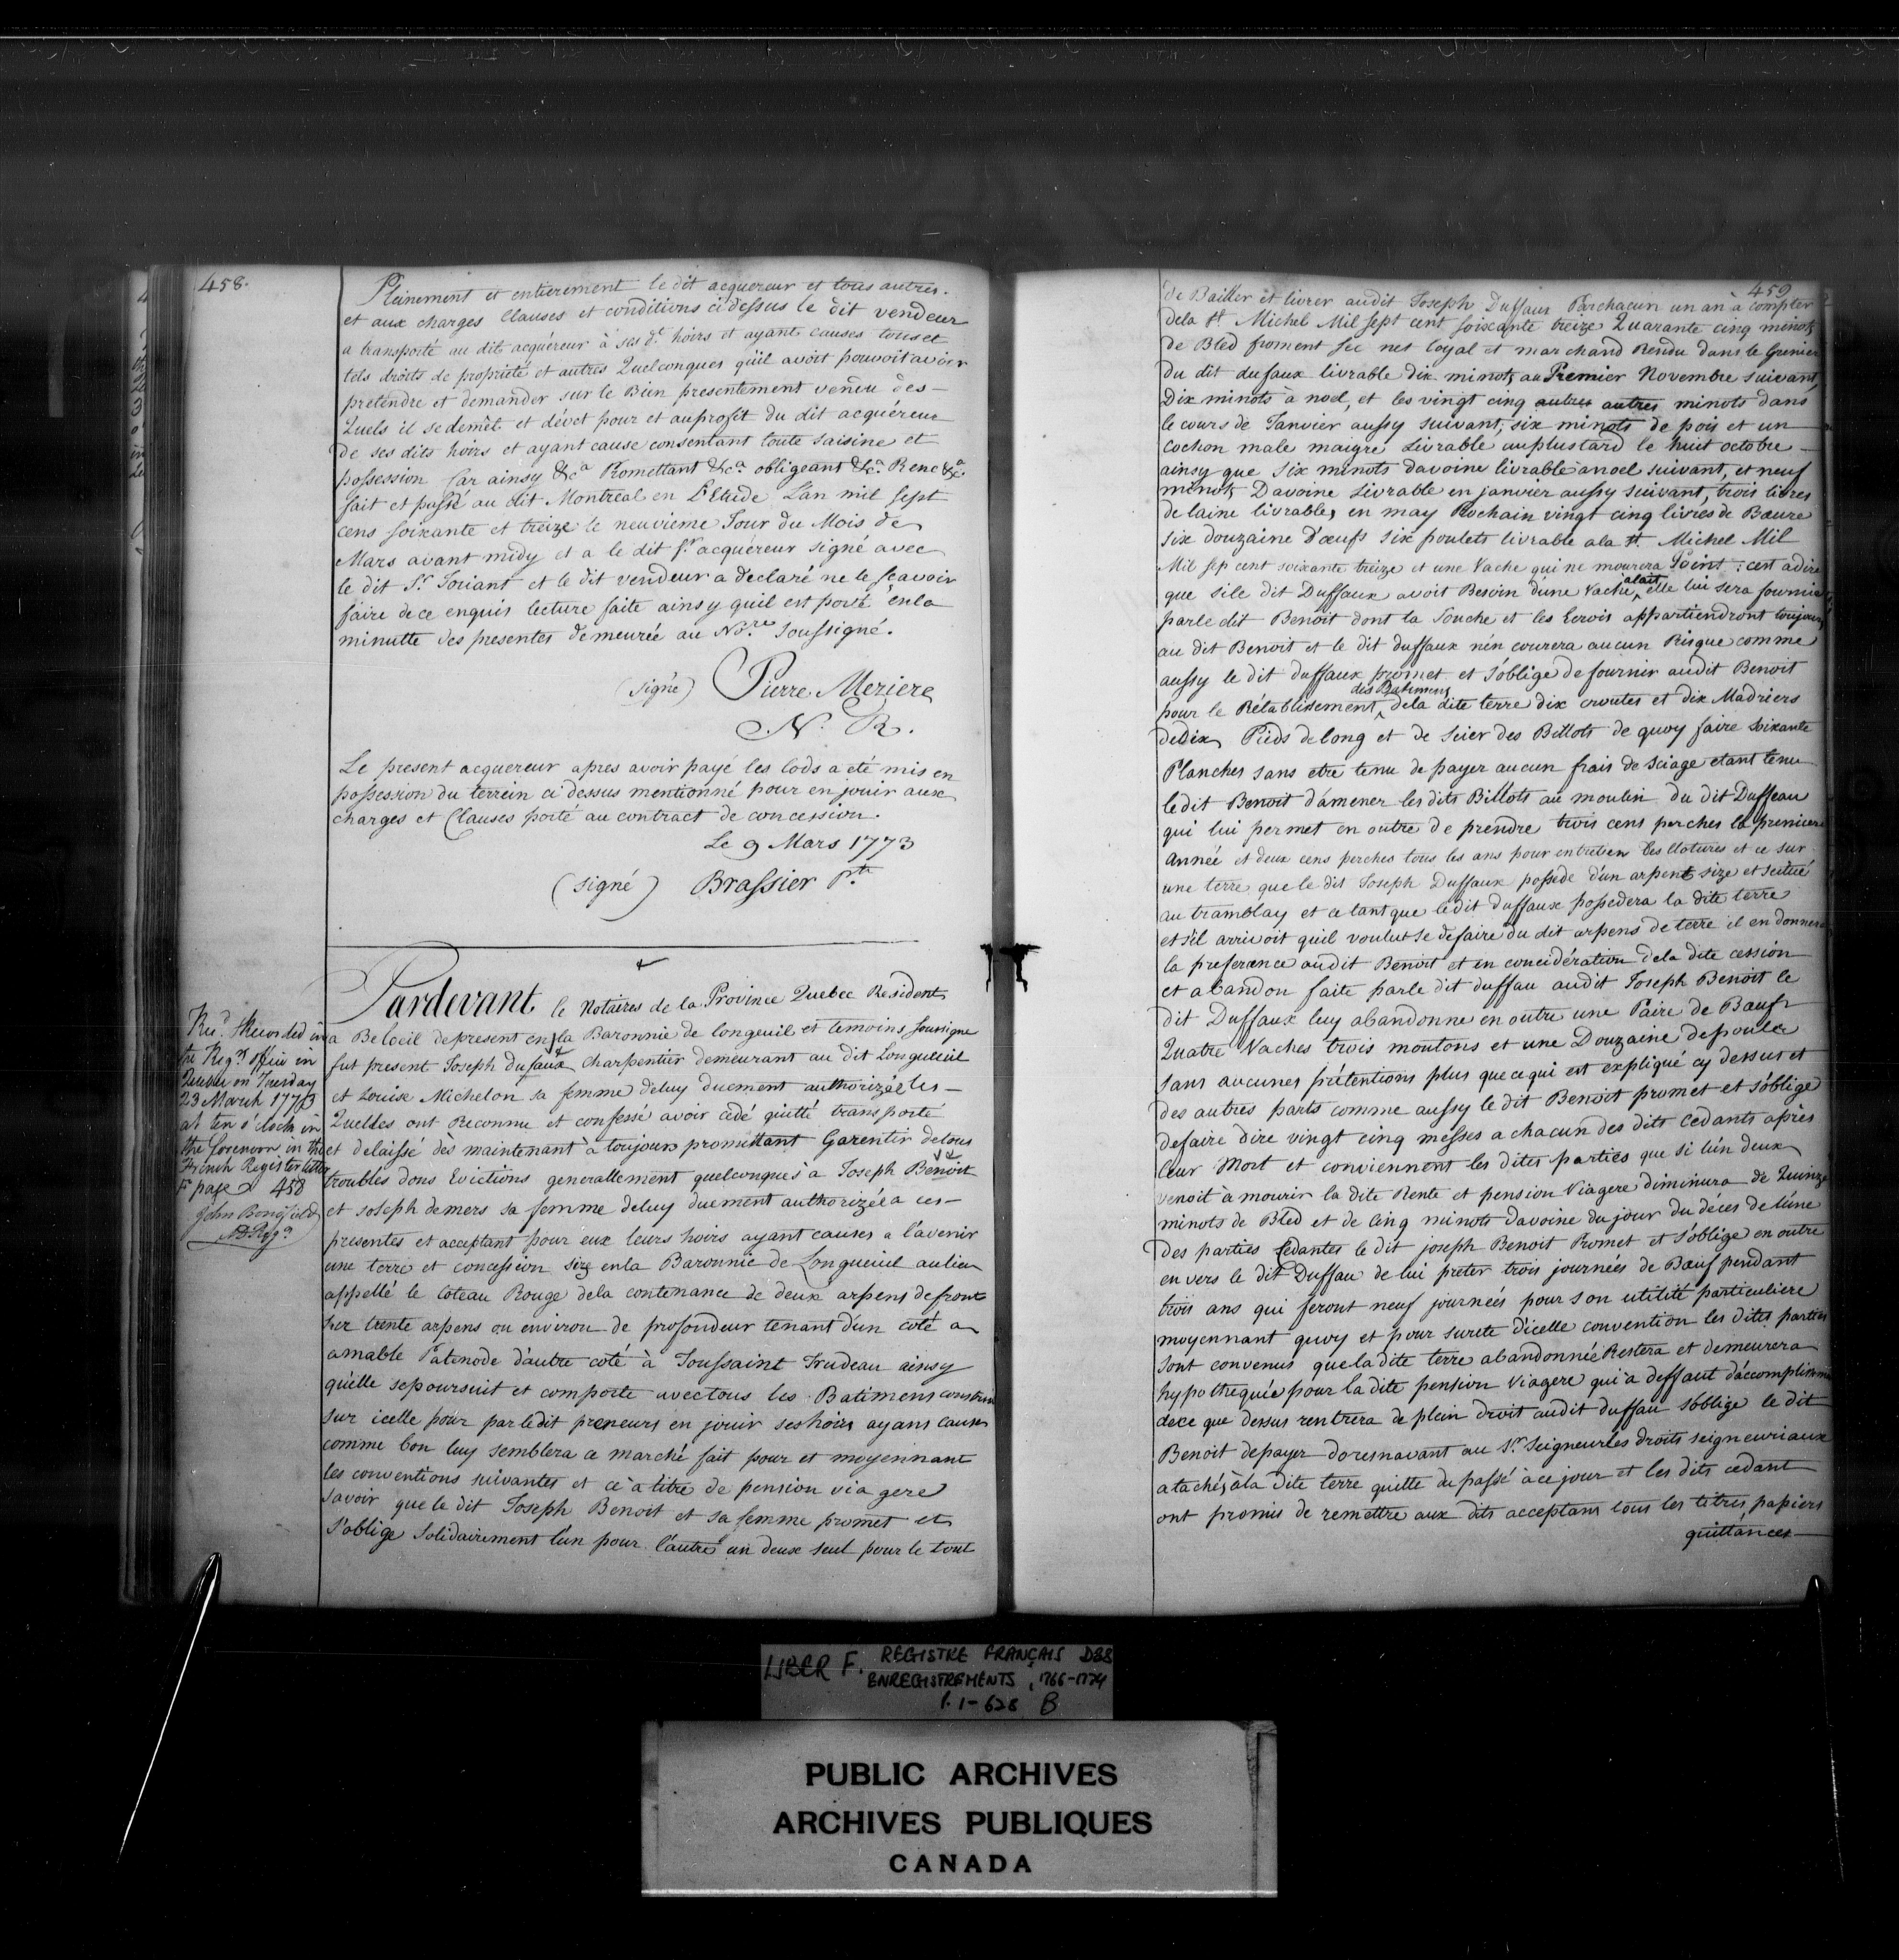 458.
Pleinement et entierement le dit acquereur et tous autres.
et aux charges Clauses et conditions ci dessus le dit vendeur
a transporté au dit acquéreur à ses dt hoirs et ayant causes tous et
tels droits de propriété et autres Quelconques qu'il avoit pouvoit avoir
prétendre et demander sur le Bien presentement vendu des-
Quels il se demêt et dévet pour et au profit du dit acquéreur
de ses dits hoirs et ayant cause consentant toute saisine et
possession Car ainsy &ca Promettant &ca obligeant &ca Renc &ca
fait et passé au dit Montreal en L'Etude L'an mil sept
cens soixante et treize le neuvieme Jour du Mois de
Mars avant midy et a le dit Sr acquéreur signé avec
le dit Sr Joriant et le dit vendeur a declaré ne le sçavoir
faire de ce enquis lecture faite ainsy qu'il est porté en la
minutte des presentes demeurée au Nore Soussigné.
(signé) Pierre Meziere
N. R.
Le present acquereur apres avoir payé les lods a eté mis en
possession du terrein ci dessus mentionné pour en jouir aux
charges et Clauses porté au contract de concession.
Le 9 Mars 1773
(signé) Brassier Ptre
Pardevant le Notaires de la Province Quebec Resident
a Beloeil de present en la Baronnie de longeuil et temoins soussigne
fut present Joseph dufaux Charpentier demeurant au dit Longueuil
et Louise Michelon sa femme deluy duement authorizée les-
Quelles ont Reconnu et confessé avoir cédé quitté transporté
et delaissé dès maintenant à toujours promettant Garentir de tous
troubles dons Evictions generallement quelconques a Joseph Benoit
et Joseph demers sa femme deluy duement authorizéé a ces-
presentes et acceptant pour eux leurs hoirs ayant causes a l'avenir
une terre et concession size en la Baronnie de Longueuil au lieu
appellé le Coteau Rouge dela contenance de deux arpens de front
sur trente arpens ou environ de profondeur tenant d'un coté a
amable Patenode d'autre coté à Toussaint Trudeau ainsy
qu'elle se poursuit et comporte avec tous les Batimens construit
sur icelle pour par ledit preneurs en jouir ses hoirs ayans causes
comme bon luy semblera ce marché fait pour et moyennant
les conventions suivantes et ce à titre de pension viagere
Savoir que le dit Joseph Benoit et sa femme promet et
S'oblige Solidairement l'un pour l'autre un deux seul pour le tout
Recd Recorded in
the Regrs Office in
Quebec on Tuesday
23 March 1773
at ten o'clock in
the forenoon in the
French Register letter
F page 458
John Bonfield
D Regr
459
de Bailler et livrer audit Joseph Duffaux Par chacun un an à compter
dela St Michel Mil sept cent soixante treize Quarante cinq minots
de Bled froment sec net loyal et marchand Rendu dans le Grenier
du dit dufaux livrable dix minots au Premier Novembre suivant
Dix minots à noel, et les vingt cinq autres autres minots dans
le cours de Janvier aussy suivant, six minots de pois et un
Cochon male maigre Livrable au plus tard le huit octobre-
ainsy que six minots davoine livrable a noel suivant, et neuf
minots Davoine Livrable en janvier aussy suivant, trois livres
de laine livrables en may Prochain vingt cinq livres de Bœure
six douzaine d'œufs six poulets livrable a la St. Michel Mil
Mil sep cent soixante treize et une Vache qui ne mourera Point: cest adire
que si le dit Duffaux avoit Besoin d'une Vache alait elle lui sera fournie
parle dit Benoit dont la Souche et les Ecrois appartiendront toujours
au dit Benoit et le dit duffaux nén courera aucun Risque comme
aussy le dit duffaux promet et s'oblige de fournir audit Benoit
pour le Rétablissement des Batimens dela dite terre dix croutes et dix Madriers
de Dix Pieds de long et de Scier des Billots de quoy faire soixante
Planches sans etre tenu de payer aucun frais de Sciage etant tenu
le dit Benoit d'amener les dits Billots au moulin du dit Duffeau
qui lui permet en outre de prendre trois cens perches la premiere
année et deux cens perches tous les ans pour entretien les clotures et ce sur
une terre que le dit Joseph Duffaux possede d'un arpent size et scitué
au tramblay et ce tant que ledit duffaux possedera la dite terre
et s'il arrivoit quil voulut se defaire du dit arpens de terre il en donnera
la preference audit Benoit et en concidération dela dite cession
et abandon faite parle dit duffau audit Joseph Benoit le
dit Duffaux luy abandonne en outre une Paire de Bœufs
Quatre Vaches trois moutons et une Douzaine de poules
sans aucunes prétentions plus que ce qui est expliqué cy dessus et
des autres parts comme aussy le dit Benoit promet et s'oblige
defaire dire vingt cinq messes a chacun des dits cedants après
leur Mort et conviennent les dites parties que si l'un deux
venoit à mourir la dite Rente et pension Viagere diminura de Quinze
minots de Bled et de cinq minots davoine du jour du déces de l'une
des parties Cedantes le dit joseph Benoit Promet et s'oblige en outre
envers le dit Duffau de lui preter trois journées de Bœuf pendant
trois ans qui feront neuf journées pour son utilité particuliere
moyennant quoy et pour sureté d'icelle convention les dites parties
sont convenus que la dite terre abandonnée Restera et demeurera
hypothequée pour la dite pension Viagere qui a deffaut d'accomplissmt
dece que dessus rentrera de plein droit audit duffau s'oblige le dit
Benoit depayer doresnavant au Sr Seigneur les droits seigneuriaux
atachés à la dite terre quitte du passé à ce jour et les dits cedant
ont promis de remettre aux dits acceptans tous les titres papiers
quittances
LIBER F. REGISTRE FRANÇAIS DES
ENREGISTREMENTS, 1766-1774
P. 1-628 B
PUBLIC ARCHIVES
ARCHIVES PUBLIQUES
CANADA